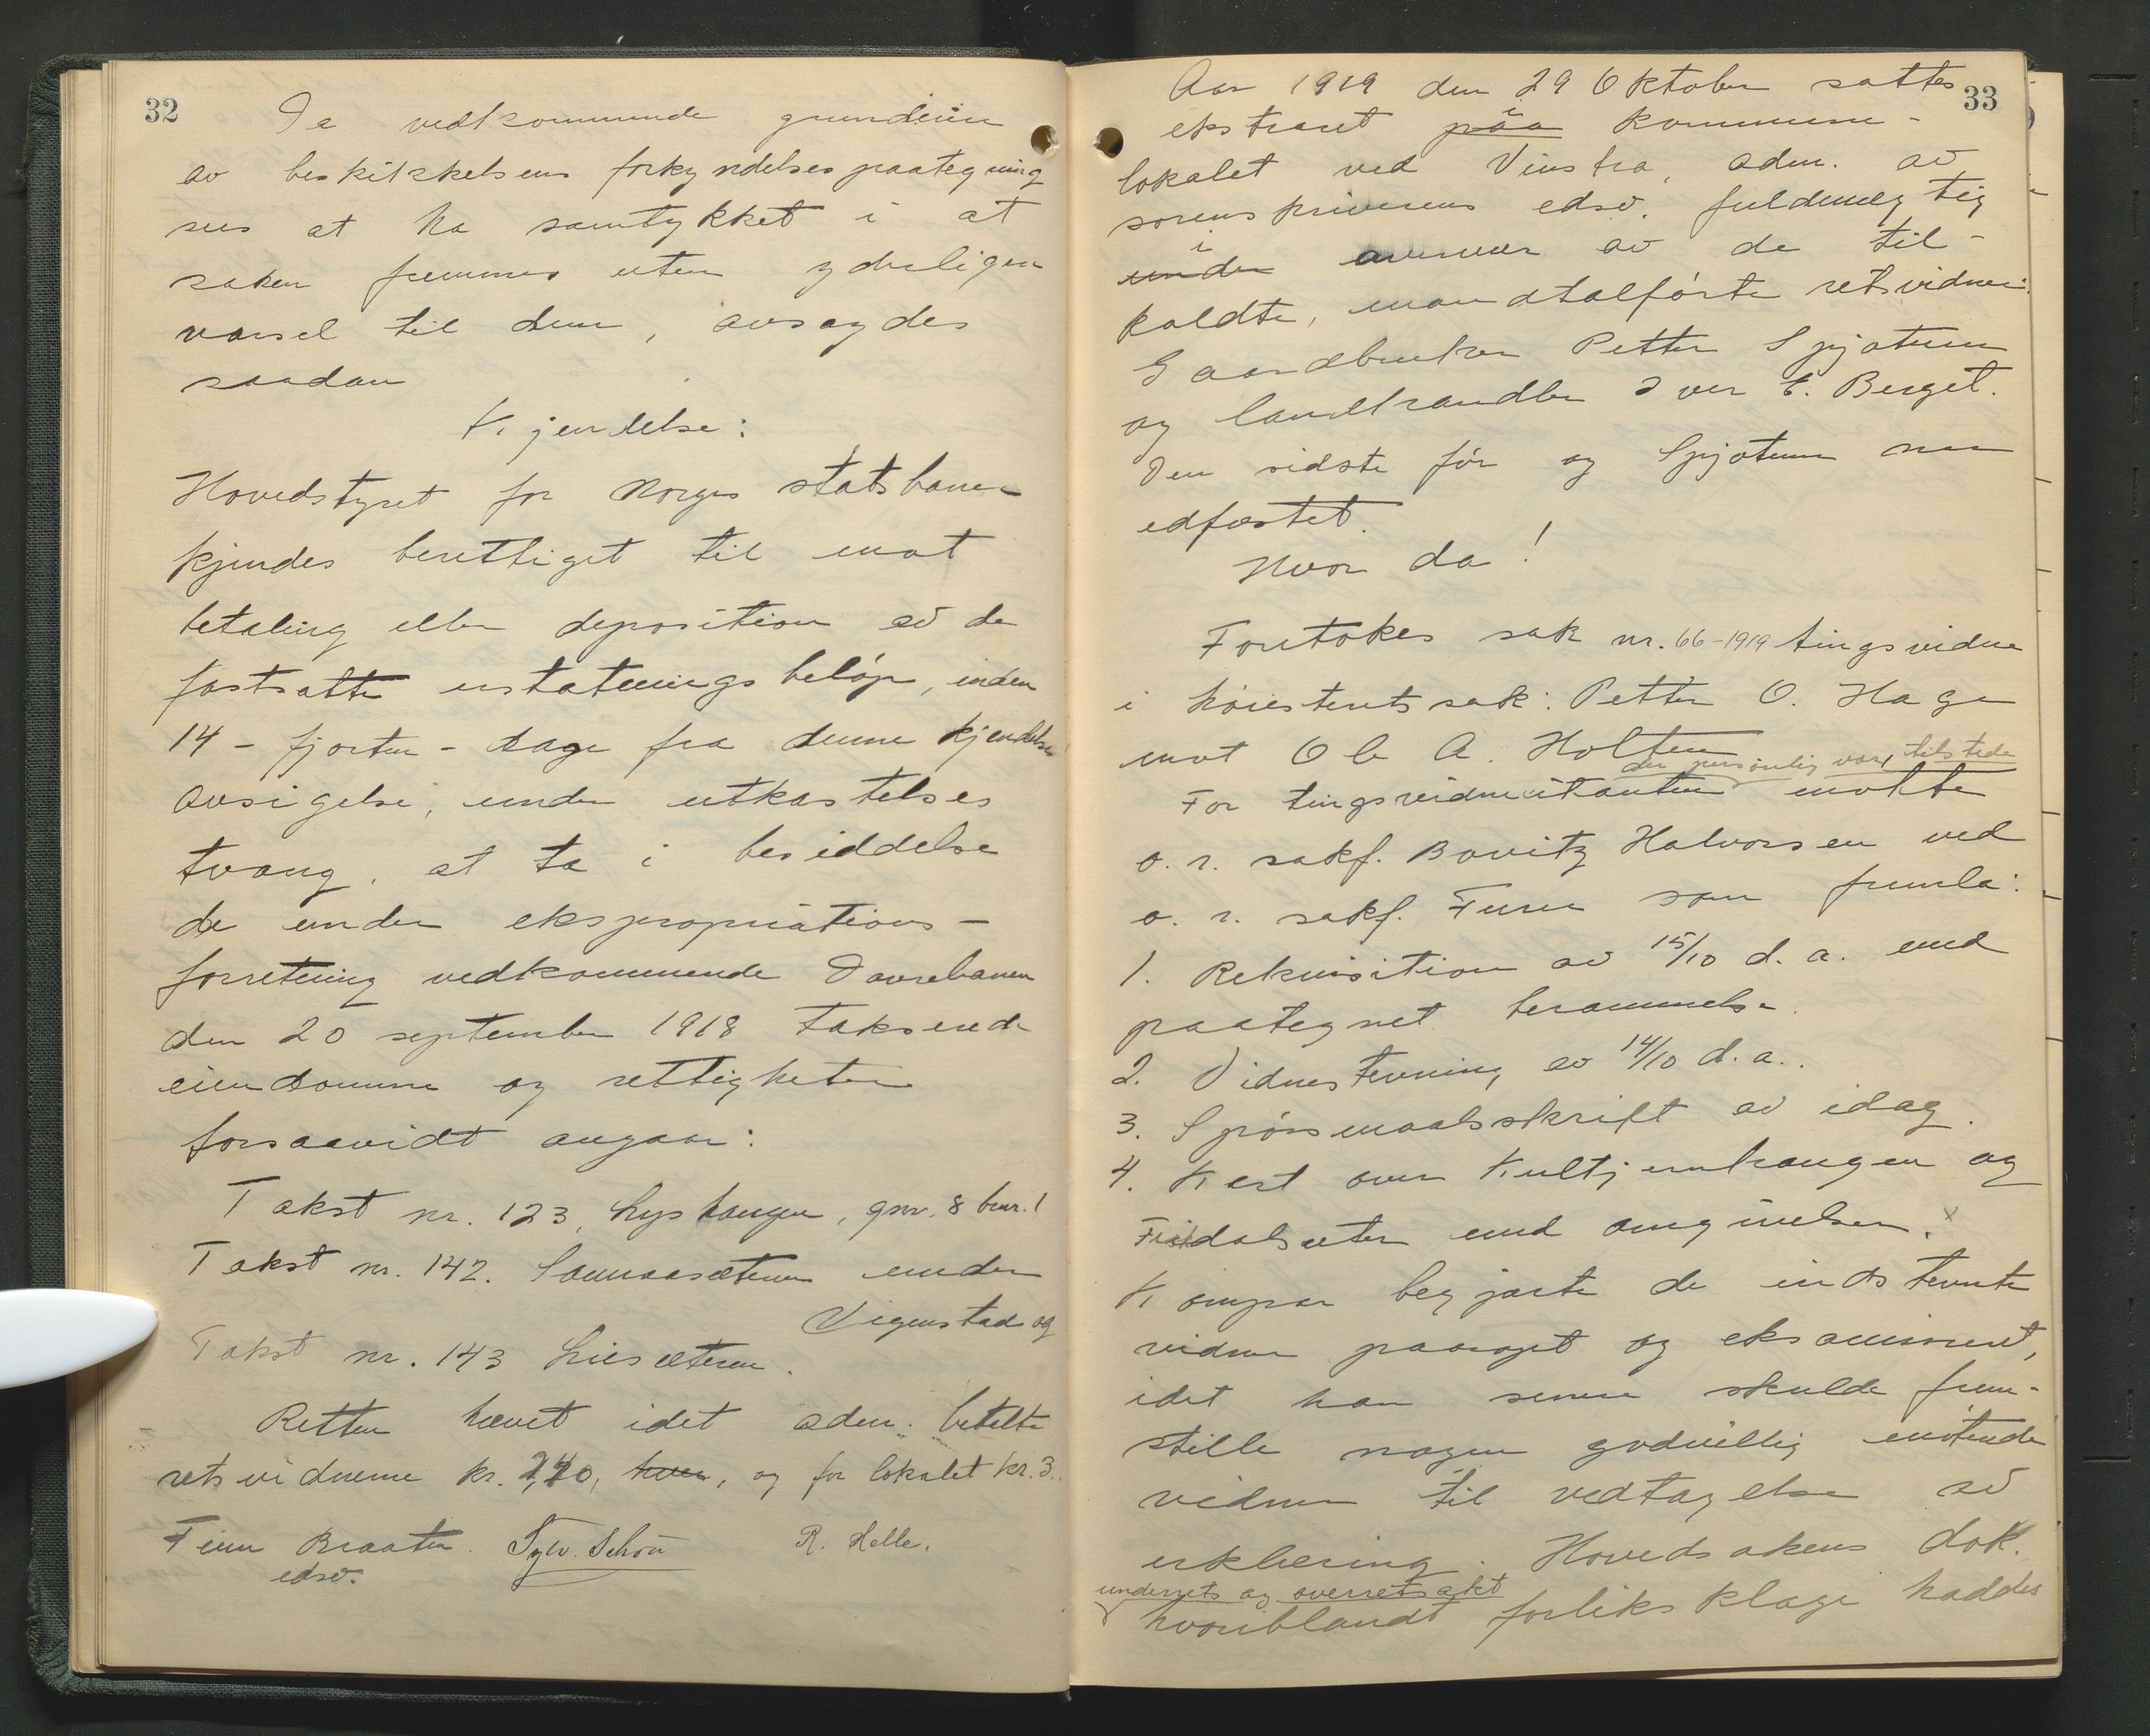 32
Da vedkommende grundeiere
av beskikkelsens forkyndelsespaategning
sees at ha samtykket i at
saken fremmes uten yderligere
varsel til dem, avsagdes
saadan
Kjendelse:
Hovedstyret for Norges statsbaner
kjendes berettiget til mot
betaling eller deposition av de
fastsatte erstatningsbeløp, inden
14 - fjorten - dage fra denne kjendelses
avsigelse, under utkastelses
tvang, at ta i besiddelse
de under ekspropriations-
forretning vedkommende Dovrebanen
den 20 september 1918 takserede
eiendomme og rettigheter
forsaavidt angaar:
Takst nr. 123, Lyshaugen, gnr. 8 bnr. 1
Takst nr. 142. Sannaasæteren under
Vigenstad og
Takst nr. 143 Liesæteren.
Retten hævet idet adm. betalte
retsvidnerne kr. 2,40, hver, og for lokalet kr. 3.
Finn Braaten Sylv. Schou R. Helle.
edsv.
33
Aar 1919 den 29 Oktober sattes
ekstraret paa kommune-
i
lokalet ved Vinstra, adm. av
sorenskriverens edsv. fuldmegtig
i
under overvær av de til-
kaldte, mandtalførte retsvidner:
Gaardbruker Petter Spjotum
og landhandler Iver E. Berget.
Den sidste før og Spjotum nu
edfæstet.
Hvor da!
Foretokes sak nr. 66-1919 tingsvidne
i høiesteretssak: Petter O. Hage
mot Ole A. Holten
der personlig var tilstede
For tingsvidnecitanten møtte
o. r. sakf. Bowitz Halvorsen ved
o. r. sakf. Furu som fremla:
1. Rekvisition av 15/10 d. a. med
paategnet berammelse.
2. Vidnestevning av 14/10 d. a..
3. Spørsmaalsskrift av idag.
4. Kart over Kultjernhaugen og
Fisdalsæter med omgivelser. x
Kompar. begjærte de indstevnte
vidner paaropt og eksaminert,
idet han senere skulde frem-
stille nogen godvillig møtende
vidner til vedtagelse av
erklæring. Hovedsakens dok.
underrets og overretsakt
hvoriblandt forliksklage haddes